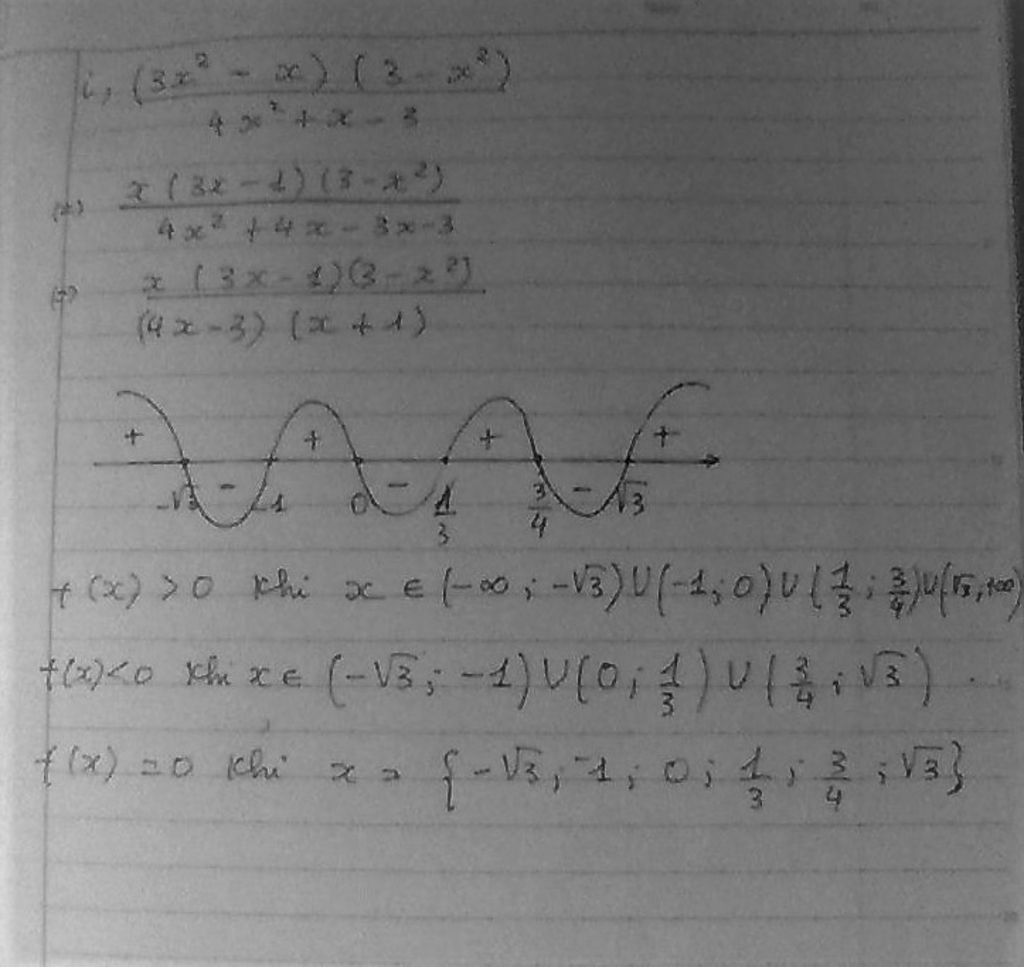 i, (3x² - x) (3 - x²)
4x² + x - 3
(=) x (3x - 1) (3 - x²)
4x² + 4x - 3x - 3
(=) x (3x - 1)(3 - x²)
(4x - 3) (x + 1)
+ + + +
-√3 - -1 0 - 1/3 3/4 - √3
f(x) > 0 khi x ∈ (-∞ ; -√3) U (-1 ; 0) U (1/3 ; 3/4) U (√3 ; +∞)
f(x) < 0 khi x ∈ (-√3 ; -1) U (0 ; 1/3) U (3/4 ; √3) .
f(x) = 0 khi x = {-√3 ; -1 ; 0 ; 1/3 ; 3/4 ; √3}